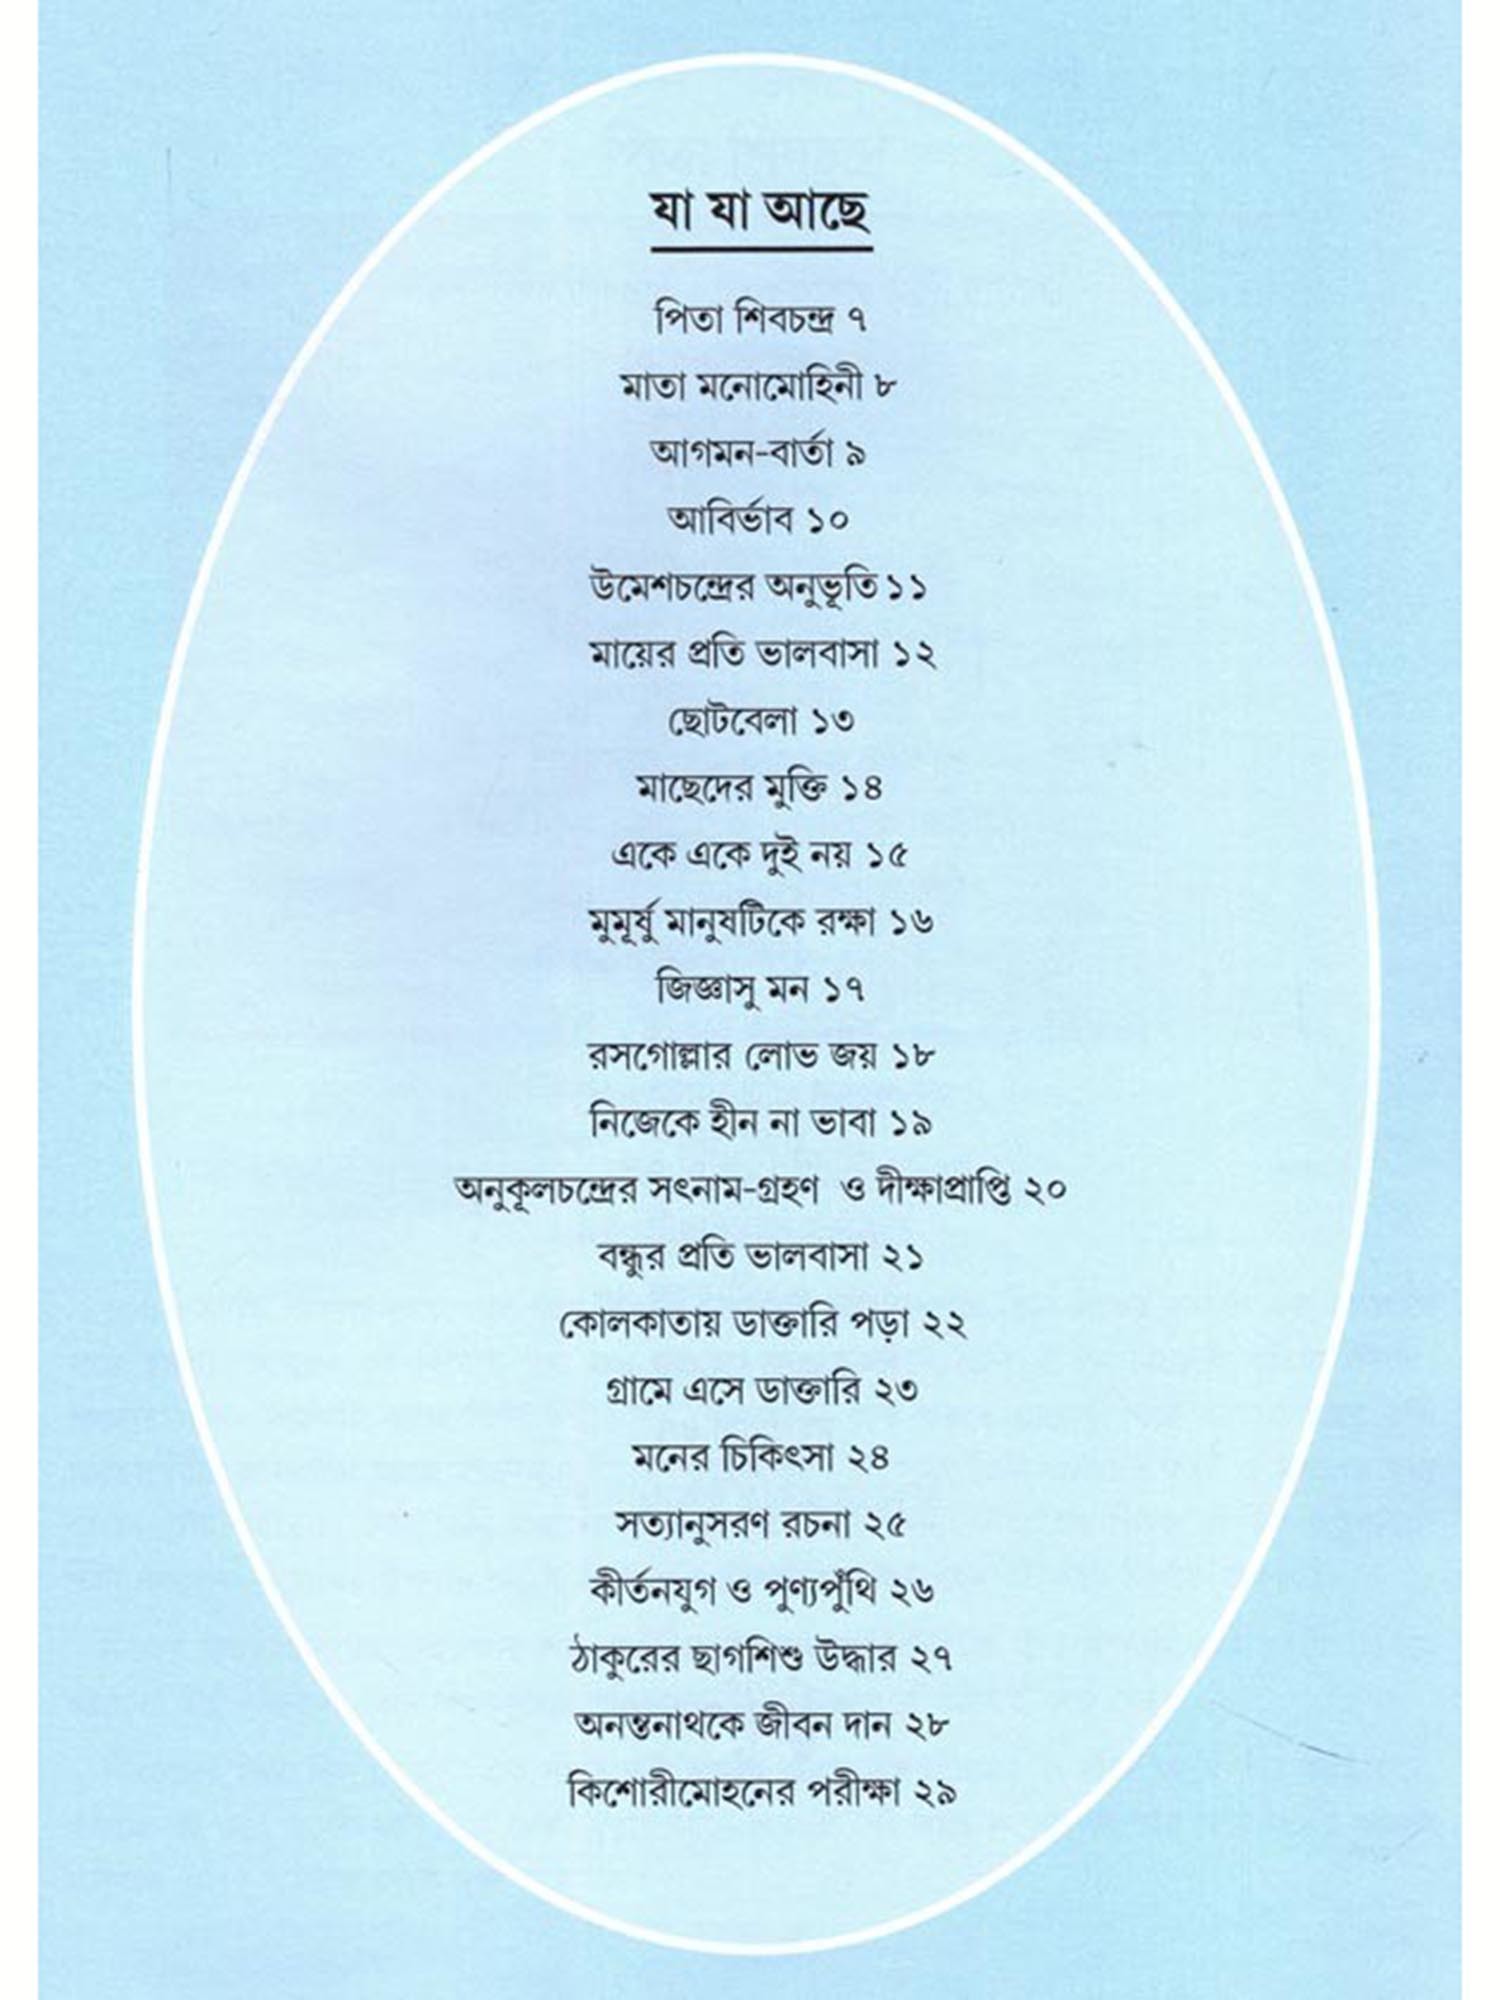 যা যা আছে
পিতা শিবচন্দ্র ৭
মাতা মনোমোহিনী ৮
আগমন-বার্তা ৯
আবির্ভাব ১০
উমেশচন্দ্রের অনুভূতি ১১
মায়ের প্রতি ভালবাসা ১২
ছোটবেলা ১৩
মাছেদের মুক্তি ১৪
একে একে দুই নয় ১৫
মুমূর্ষু মানুষটিকে রক্ষা ১৬
জিজ্ঞাসু মন ১৭
রসগোল্লার লোভ জয় ১৮
নিজেকে হীন না ভাবা ১৯
অনুকূলচন্দ্রের সৎনাম-গ্রহণ ও দীক্ষাপ্রাপ্তি ২০
বন্ধুর প্রতি ভালবাসা ২১
কোলকাতায় ডাক্তারি পড়া ২২
গ্রামে এসে ডাক্তারি ২৩
মনের চিকিৎসা ২৪
সত্যানুসরণ রচনা ২৫
কীর্তনযুগ ও পুণ্যপুঁথি ২৬
ঠাকুরের ছাগশিশু উদ্ধার ২৭
অনন্তনাথকে জীবন দান ২৮
কিশোরীমোহনের পরীক্ষা ২৯